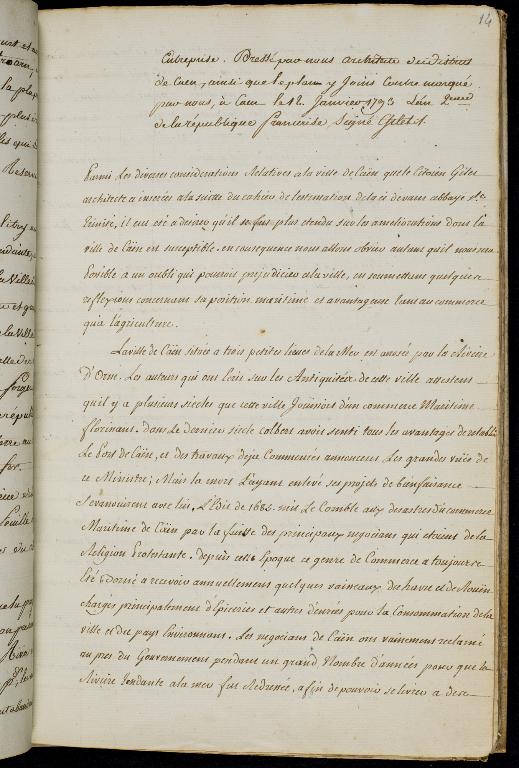 14
Entreprise. Dressé par nous architecte du district
de Caen, ainsi que le plan y Joint Contre marqué
par nous, à Caen le 12 Janvier 1793 L'an 2.
de la république francaise Signé Gilet.
Parmi Les diverses considerations Relatives a la ville de Caën que le Citoien Gilet
architecte a inserées a la suitte du cahier de l'estimation de la ci devant abbaye Ste
Trinité, il eut été a desirer qu'il se fut plus etendu sur les ameliorations dont la
ville de Caën est susceptible. en consequence nous allons obvier autant qu'il nous sera
Possible à un oubli qui pouroit prejudicier a la ville, en soumettant quelques
reflexions concernant sa position maritime et avantageuse tant au commerce
qu'a l'agriculture.
La ville de Caën située a trois petites lieues de la Mer est arrosée par la Riviere
d'Orne. Les auteurs qui ont Ecrit sur les Antiquités de cette ville attestent
qu'il y a plusieurs siecles que cette ville Jouissoit d'un commerce Maritime
florissant. dans Le dernier siecle Colbert avoit senti tous les avantages de rétablir
Le Port de Caën, et des travaux deja Commencés annoncent Les grandes vües de
ce Ministre; Mais la mort L'ayant enlevé ses projets de bienfaisance
s'evanouirent avec lui. L'Edit de 1685. mit Le Comble aux desastres du commerce
Maritime de Caën par la fuitte des principaux negocians qui etoient de la
Religion Protestante. depuis cette Epoque ce genre de Commerce a toujours
Eté borné a recevoir annuellement quelques vaisseaux du havre et de Roüen
chargés principalement d'Epiceries et autres denrées pour la Consommation de la
ville et du pays Environnant. Les negocians de Caën ont vainement reclamé
au près du Gouvernement pendant un grand Nombre d'années pour que la
Riviere Tendante a la mer fut Redressée, afin de pouvoir se livrer a des